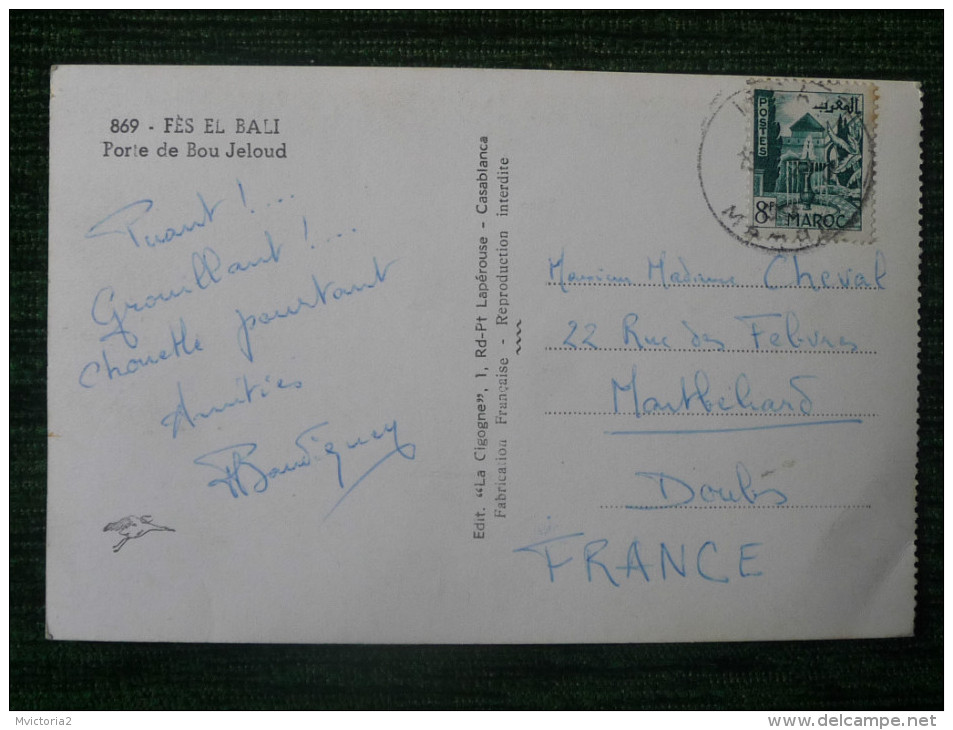 869 - FÈS EL BALI
Porte de Bou Jeloud
Puant !...
Grouillant !...
chouette pourtant
Amitiés
Edit. "La Cigogne", 1, Rd-Pt Lapérouse - Casablanca
Fabrication Française - Reproduction interdite
POSTES
المغرب
8F
MAROC
Monsieur Madame Cheval
22 Rue des Febvres
Montbéliard
Doubs
FRANCE
Mvictoria2
http://www.delcampe.net